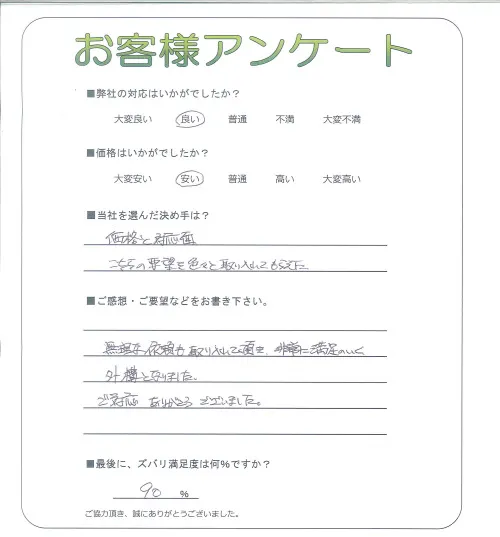 お客様アンケート
■弊社の対応はいかがでしたか？
大変良い 良い 普通 不満 大変不満
■価格はいかがでしたか？
大変安い 安い 普通 高い 大変高い
■当社を選んだ決め手は？
価格と対応面
こちらの要望を色々と取り入れてもらえた
■ご感想・ご要望などをお書き下さい。
無理な依頼も取り入れて頂き、非常に満足のいく
外構となりました。
ご対応 ありがとうございました。
■最後に、ズバリ満足度は何％ですか？
90 ％
ご協力頂き、誠にありがとうございました。